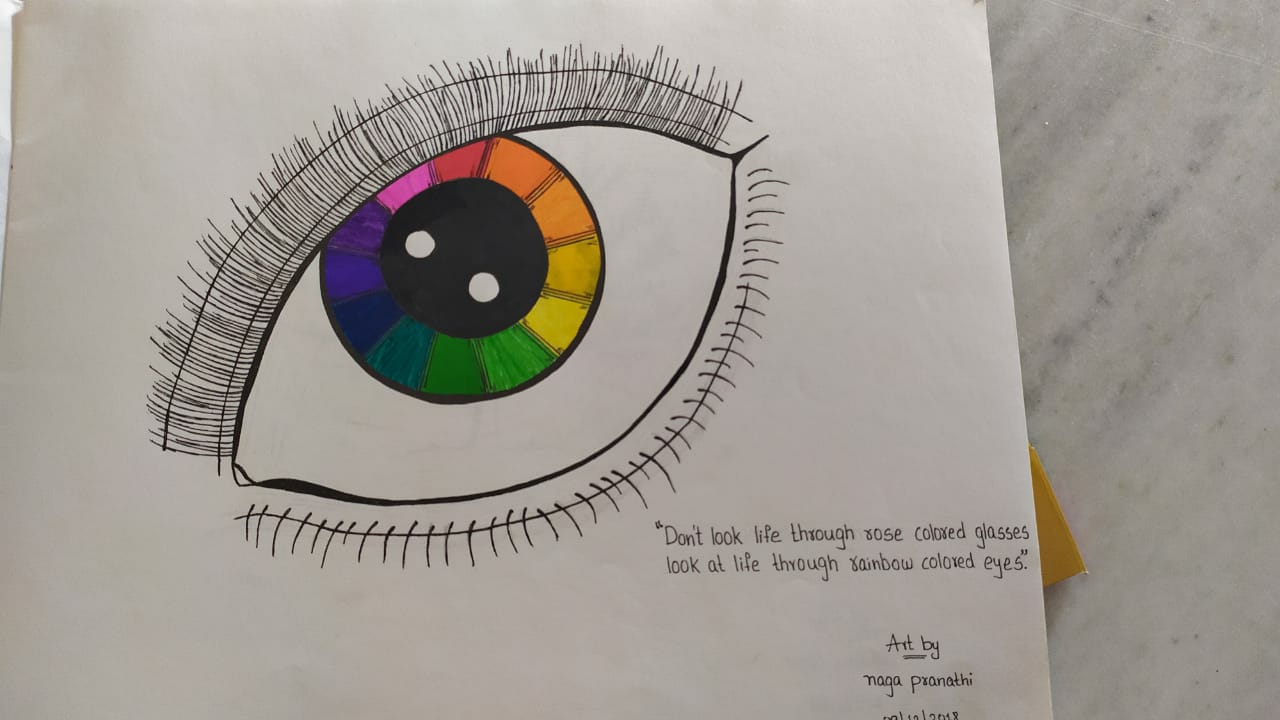 "Don't look life through rose colored glasses
look at life through rainbow colored eyes."
Art by
naga pranathi